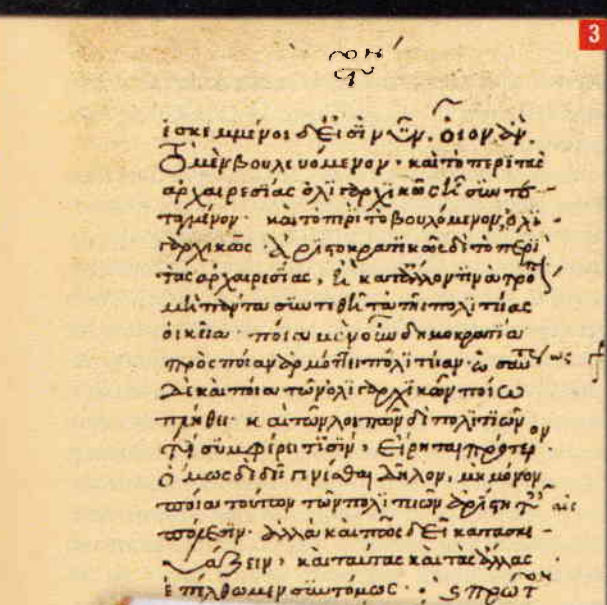 3
ἐσκεμμένοι δ' εἰσὶ νῦν. οἷον ἂν
τὸ μὲν βουλευόμενον· καὶ τὸ περὶ τὰς
ἀρχαιρεσίας ὀλιγαρχικῶς ἦ συντε-
ταγμένον· καὶ τὸ περὶ τὸ βουλόμενον, ὀλι-
γαρχικῶς· ἀριστοκρατικῶς δὲ τὸ περὶ
τὰς ἀρχαιρεσίας, ἢ κατ' ἄλλον τινὰ τρόπ
μὴ πάντα συντεθῆ τὰ τῆς πολιτείας
οἰκεῖα· ποία μὲν οὖν δημοκρατία
πρὸς ποίαν ἁρμόττει πολιτείαν· ὡσαύτως
δὲ καὶ ποία τῶν ὀλιγαρχικῶν ποίω
πλήθει· καὶ τῶν λοιπῶν δὲ πολιτειῶν
τίς συμφέρει τισὶν, εἴρηται πρότερον
ὅμως δὲ δεῖ γενέσθαι δῆλον, μὴ μόνον
ποία τούτων τῶν πολιτειῶν ἀρίστη ταῖς
πόλεσιν· ἀλλὰ καὶ πῶς δεῖ κατασκευ-
άζειν, καὶ ταύτας καὶ τὰς ἄλλας
ἐπέλθωμεν συντόμως· καὶ πρῶτον